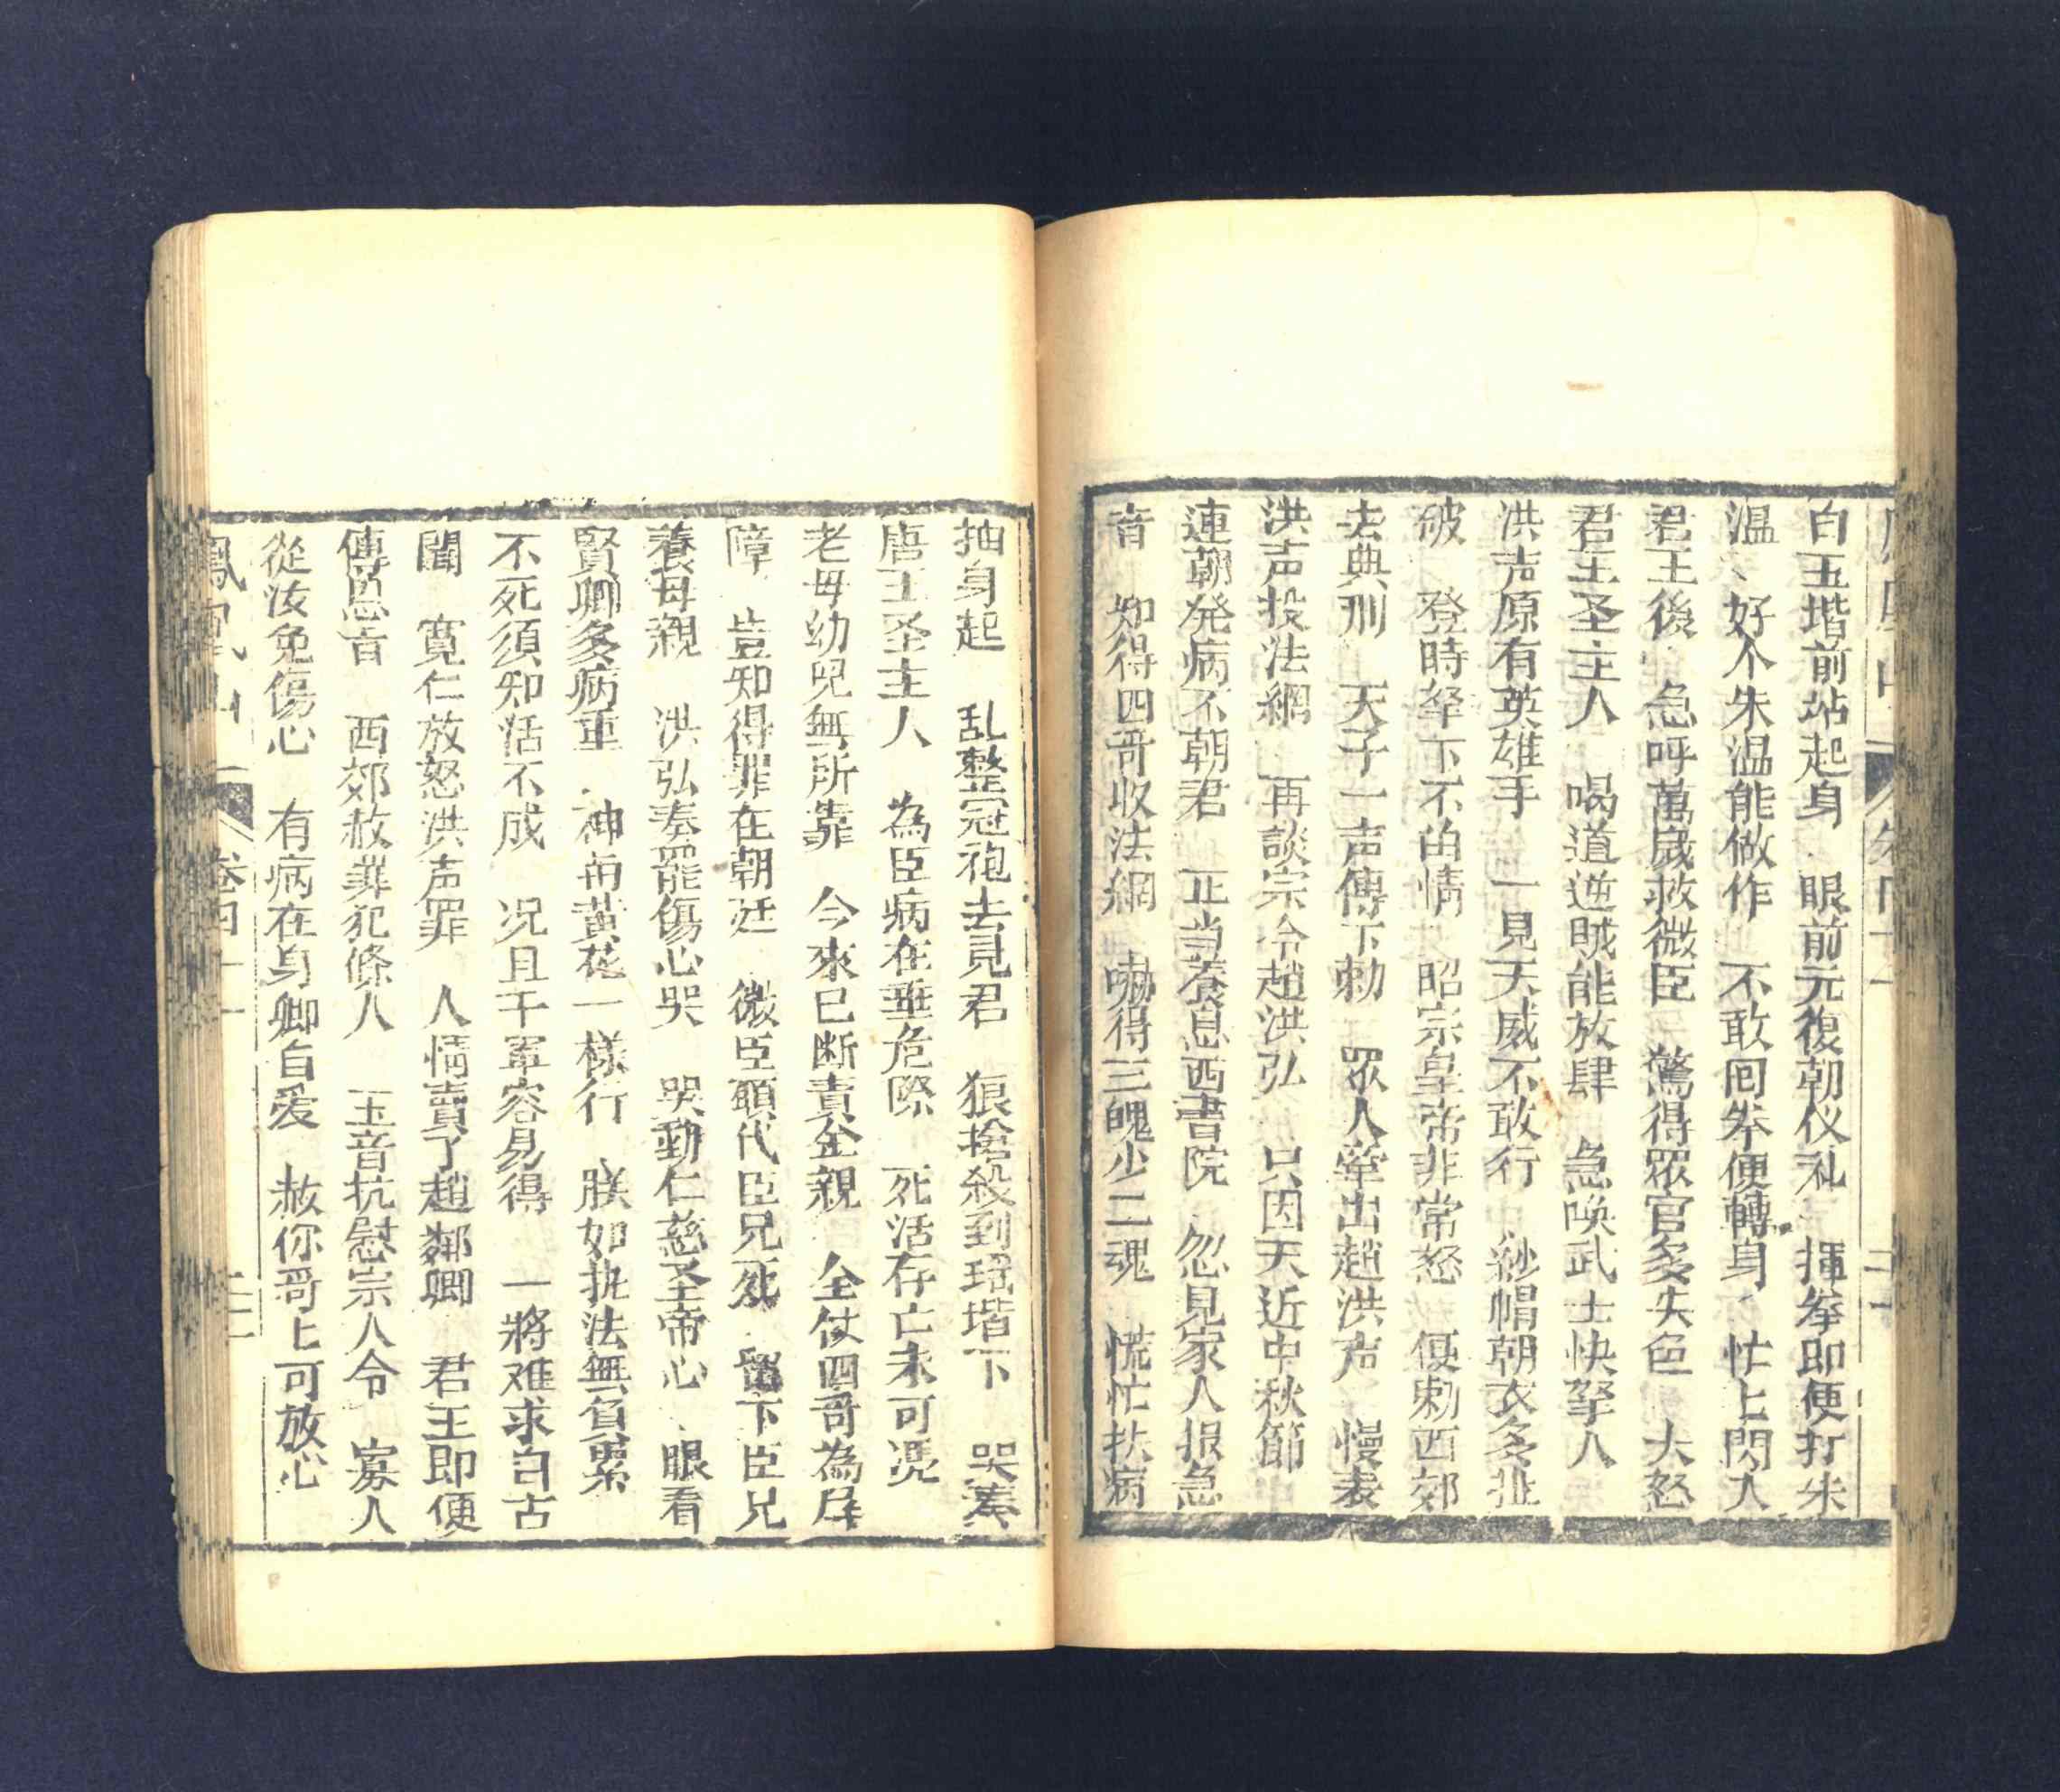 白玉堦前站起身 眼前元復朝仪礼 揮拳即便打朱
温 好个朱温能做作 不敢囘拳便轉身 忙上閃入
君王後 急呼萬歲救微臣 驚得眾官多失色 大怒
君王圣主人 喝道逆賊能放肆 急唤武士快拏人
洪声原有英雄手 一見天威不敢行 紗帽朝衣多扯
破 登時拏下不由情 昭宗皇帝非常怒 便剌西郊
去典刑 天子一声傳下勅 眾人拏出趙洪声 慢表
洪声投法網 再談宗令趙洪弘 只因天近中秋節
連朝発病不朝君 正当养息西書院 忽見家人报急
音 知得四哥收法網 嚇得三魄少二魂 慌忙扶病
抽身起 乱整冠袍去見君 狼搶殺到瑶堦下 哭奏
唐王圣主人 為臣病在垂危際 死活存亡未可凭
老母幼児無所靠 今來已断責金親 全仗四哥為屏
障 豈知得罪在朝廷 微臣願代臣兄死 留下臣兄
養母親 洪弘奏罷傷心哭 哭動仁慈圣帝心 眼看
賢卿多病重 神冉黄花一様行 朕如执法無負累
不死須知活不成 况且千軍容易得 一將难求自古
聞 寛仁放怒洪声罪 人情賣了趙鄰卿 君王即便
傳恩音 西郊赦罪犯條人 玉音抗慰宗人令 寡人
從汝免傷心 有病在身卿自爱 赦你哥上可放心
鳳凰山 卷四十一 二一